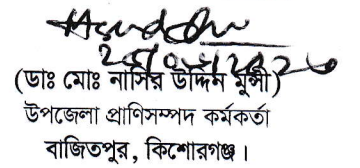 (ডাঃ মোঃ নাসির উদ্দিন মুন্সী)
উপজেলা প্রাণিসম্পদ কর্মকর্তা
বাজিতপুর, কিশোরগঞ্জ।